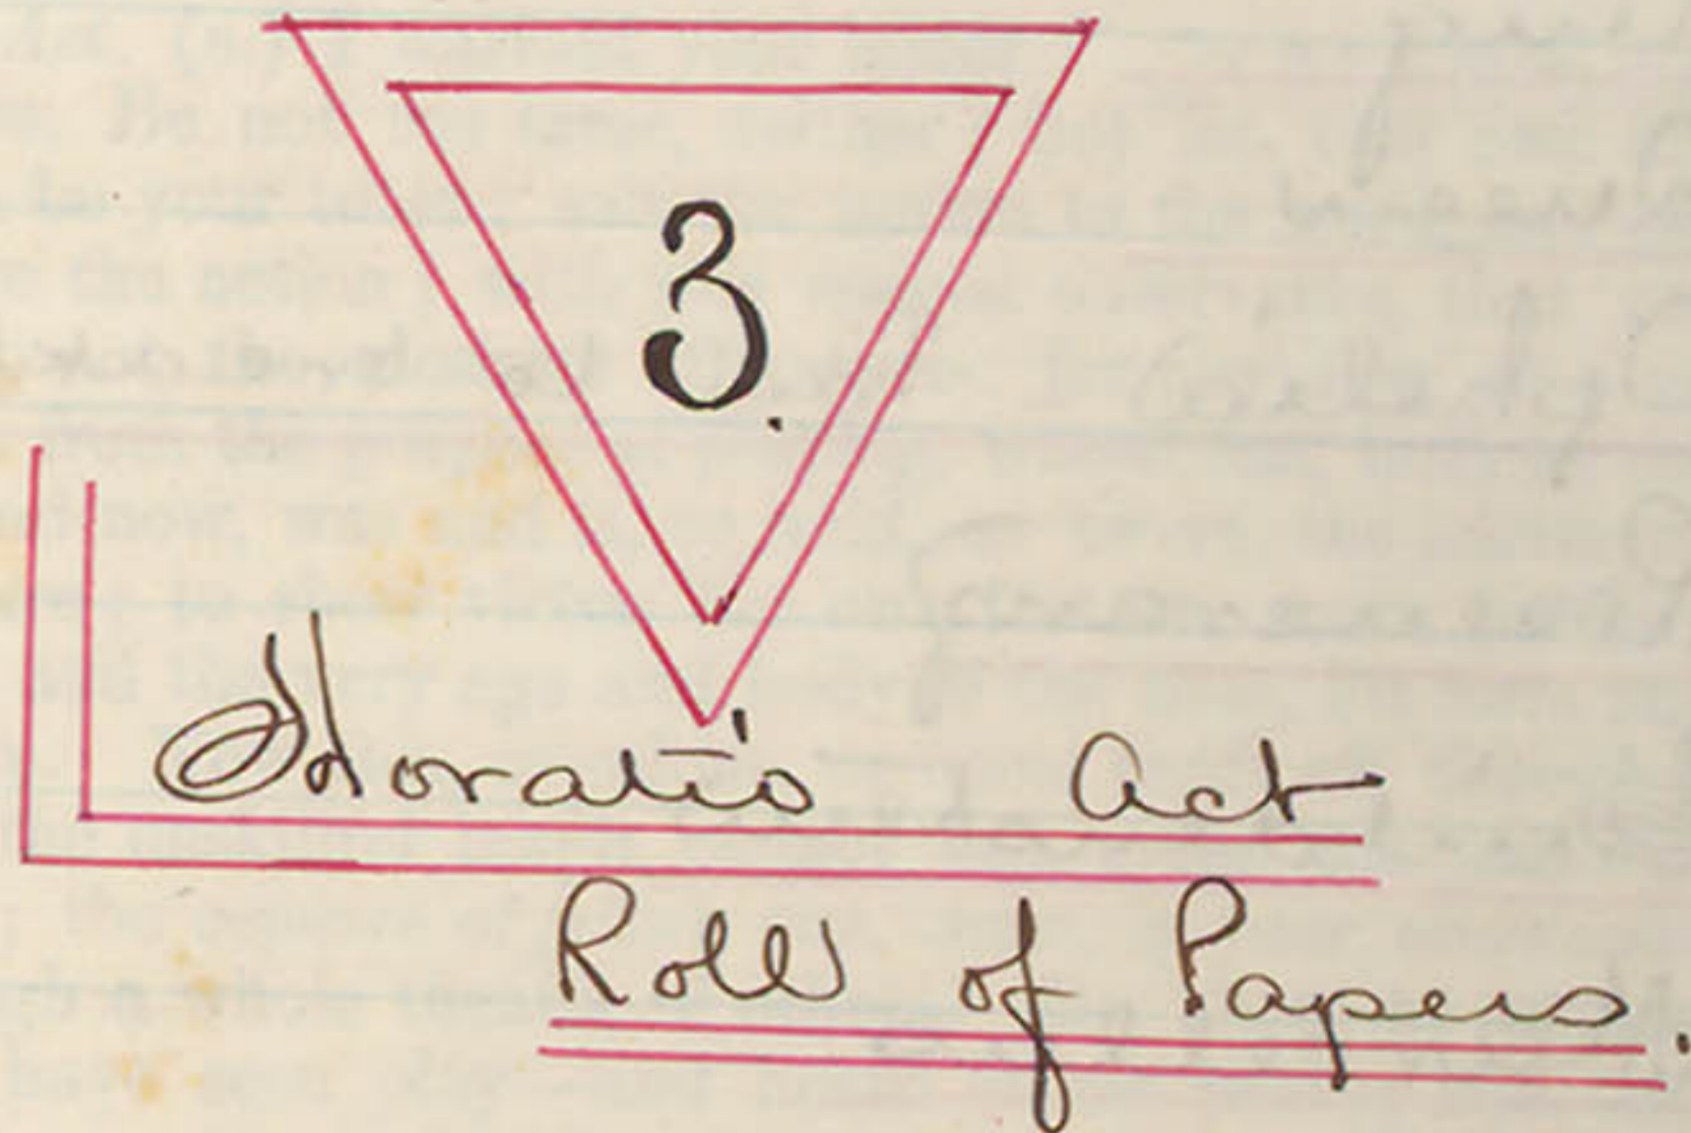 3.
Horatio act
Roll of Papers.